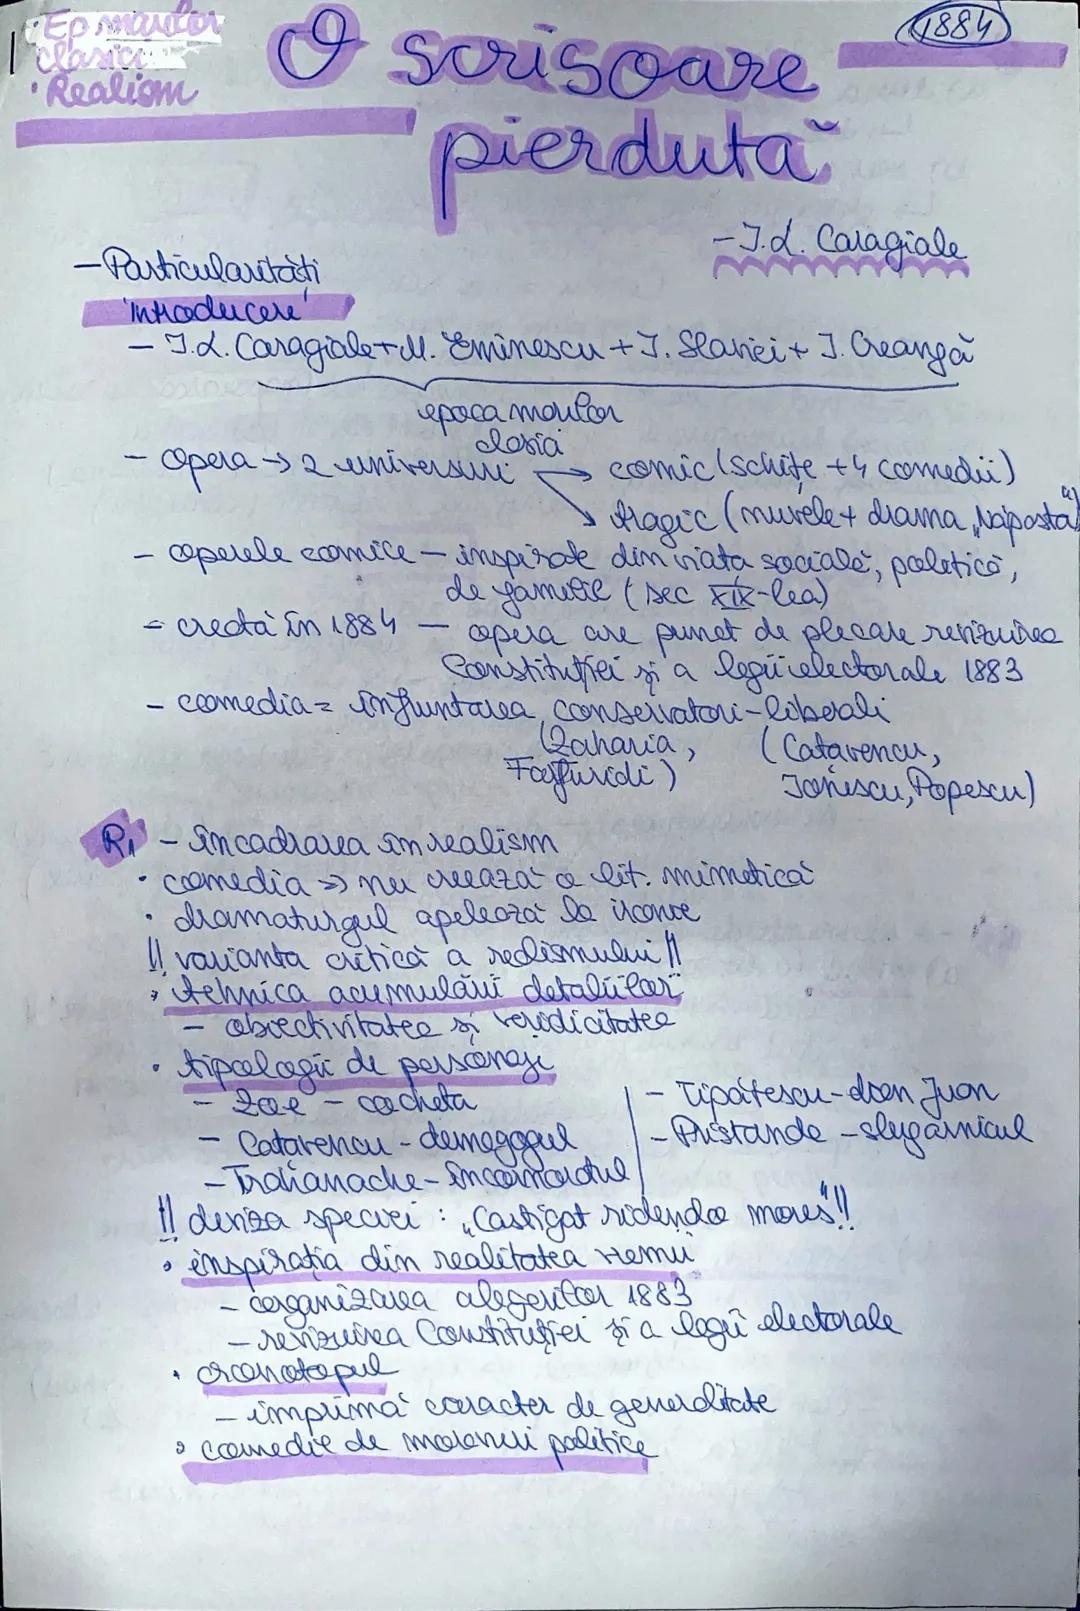 • Ep marilor
clasici
• Realism
1884
O scrisoare
pierdută
- I.L. Caragiale
- Particularități
introducere
- I.L. Caragiale + M. Eminescu + I. Slavici + I. Creangă
epoca marilor
clasici
- opera → 2 universuri → comic (schițe + 4 comedii)
→ tragic (nuvele + drama „Năpasta")
- operele comice - inspirate din viața socială, politică,
de familie (sec XIX-lea)
- creată în 1884 - opera are punct de plecare revizuirea
Constituției și a legii electorale 1883
- comedia = înfruntarea conservatori-liberali
(Zaharia, (Cațavencu,
Farfuridi) Ionescu, Popescu)
R1 - încadrarea în realism
• comedia => nu crează o lit. mimetică
• dramaturgul apelează la ironie
!! varianta critică a realismului !!
• tehnica acumulării detaliilor
- obiectivitatea și veridicitatea
• tipologii de personaje
- Zoe - cocheta
- Cațavencu - demagogul
- Trahanache - încornoratul
- Tipătescu - don Juan
- Pristanda - slugarnicul
!! deviza speciei : „Castigat ridendo mores" !!
• inspirația din realitatea vremii
- organizarea alegerilor 1883
- revizuirea Constituției și a legii electorale
• cronotopul
- imprimă caracter de generalitate
• comedie de moravuri politice